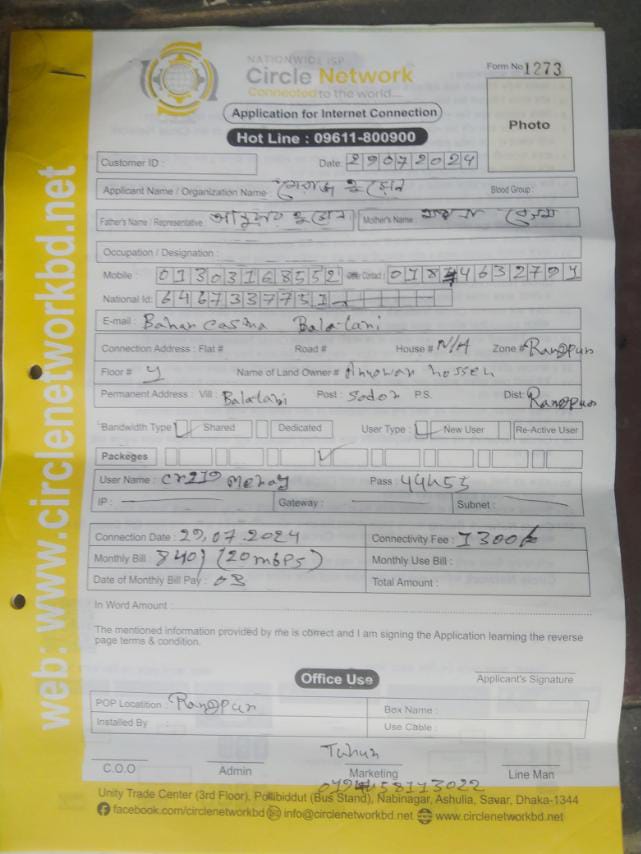 NATIONWIDE ISP
Circle Network
Connected to the world....
Form No 1273
Application for Internet Connection
Photo
Hot Line : 09611-800900
Customer ID : Date 29072024
Applicant Name / Organization Name মেরাজ হোসেন Blood Group :
Father's Name / Representative : আনোয়ার হোসেন Mother's Name : বেগম
Occupation / Designation :
Mobile : 01303168552 Contact : 01874632791
National Id: 6467337731
E-mail : Bahar Balatari
Connection Address : Flat # Road # House # N/A Zone # Rangpur
Floor # Y Name of Land Owner # Anowar hossen
Permanent Address : Vill : Balatari Post : Sador P.S. Dist: Rangpur
Bandwidth Type Shared Dedicated User Type : New User Re-Active User
Packeges
User Name : Pass : 44h55
IP : Gateway : Subnet :
Connection Date : 29.07.2024 Connectivity Fee : 1300/-
Monthly Bill : 840/ (20mbps) Monthly Use Bill :
Date of Monthly Bill Pay : 03 Total Amount :
In Word Amount :
The mentioned information provided by me is correct and I am signing the Application learning the reverse
page terms & condition.
Applicant's Signature
Office Use
POP Locatition : Rangpur Box Name :
Installed By Use Cable :
Tuhin
C.O.O Admin Marketing Line Man
Unity Trade Center (3rd Floor), Pollibiddut (Bus Stand), Nabinagar, Ashulia, Savar, Dhaka-1344
facebook.com/circlenetworkbd info@circlenetwork.net www.circlenetworkbd.net
web: www.circlenetworkbd.net